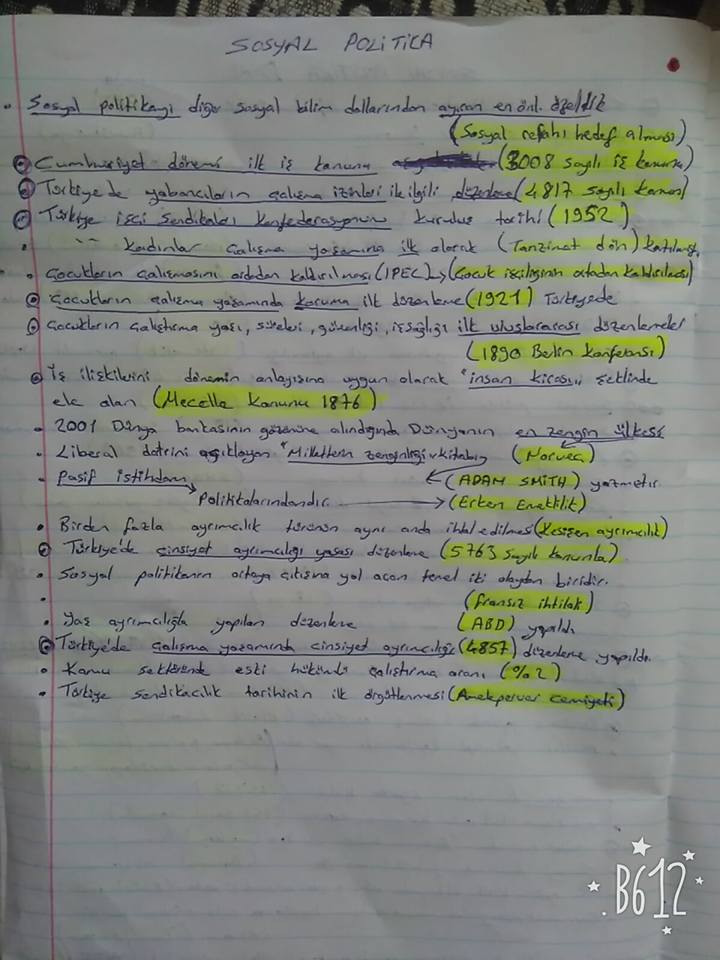 SOSYAL POLİTİKA
• Sosyal politikayı diğer sosyal bilim dallarından ayıran en önl. özellik
(Sosyal refahı hedef alması)
Cumhuriyet dönemi ilk iş kanunu (3008 sayılı iş kanunu)
Türkiye'de yabancıların çalışma izinleri ile ilgili düzenleme (4817 sayılı kanun)
Türkiye işçi Sendikaları Konfederasyonun kuruluş tarihi (1952)
• '' kadınlar çalışma yaşamına ilk olarak (Tanzimat dön) katılmış
• Çocukların çalışmasını ortadan kaldırılması (IPEC) → (Çocuk işçiliğinin ortadan kaldırılması)
Çocukların çalışma yaşamında koruma ilk düzenleme (1921) Türkiyede
Çocukların çalıştırma yaşı, süreleri, güvenliği, işsağlığı ilk uluslararası düzenlemeler
(1890 Berlin Konferansı)
İş ilişkilerini dönemin anlayışına uygun olarak "insan kirası" şeklinde
ele alan (Mecelle Kanunu 1876)
• 2001 Dünya bankasının gözönüne alındığında Dünyanın en zengin ülkesi
• Liberal doktrini açıklayan "Milletlerin zenginliği" kitabını (Norveç)
• Pasif istihdam ← (ADAM SMİTH) yazmıştır.
Politikalarındandır. → (Erken Emeklilik)
• Birden fazla ayrımcılık türünün aynı anda ihlal edilmesi (Kesişen ayrımcılık)
Türkiye'de cinsiyet ayrımcılığı yasası düzenleme (5763 sayılı kanunla)
• Sosyal politikanın ortaya çıkışına yol açan temel iki olaydan biridir.
• (fransız ihtilalı)
• Yaş ayrımcılığla yapılan düzenleme (ABD) yapıldı
Türkiye'de çalışma yaşamında cinsiyet ayrımcılığı (4857) düzenleme yapıldı.
• Kamu sektöründe eski hükümlü çalıştırma oranı (%2)
• Türkiye sendikacılık tarihinin ilk örgütlenmesi (Ameleperver cemiyeti)
B612